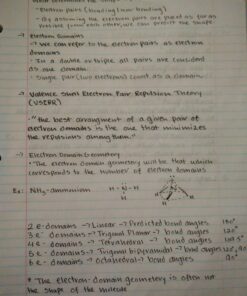 Electron pairs (bonding/non-bonding)
• By assuming the electron pairs are placed as far as
possible from each other, we can predict the shape
→ Electron Domains
→ We can refer to the electron pairs as electron
domains
• In a double or triple, all pairs are considered
as one domain
• Single pair (two electrons) count as a domain
→ Valence Shell Electron Pair Repulsion Theory
(VSEPR)
• "the best arrangement of a given pair of
electron domains is the one that minimizes
the repulsions among them."
→ Electron Domain Geometry
• The electron domain geometry will be that which
corresponds to the number of electron domains
Ex: NH₃-ammonium
H-N-H
H
2 e⁻ domains → Linear → Predicted bond angles 180°
3 e⁻ domains → Trigonal Planar → bond angles 120°
4 e⁻ domains → Tetrahedral → bond angles 109.5°
5 e⁻ domains → Trigonal bipyramidal → bond angles 120°, 90°
6 e⁻ domains → Octahedral → bond angles 90°
* The electron-domain geometry is often not
the shape of the molecule